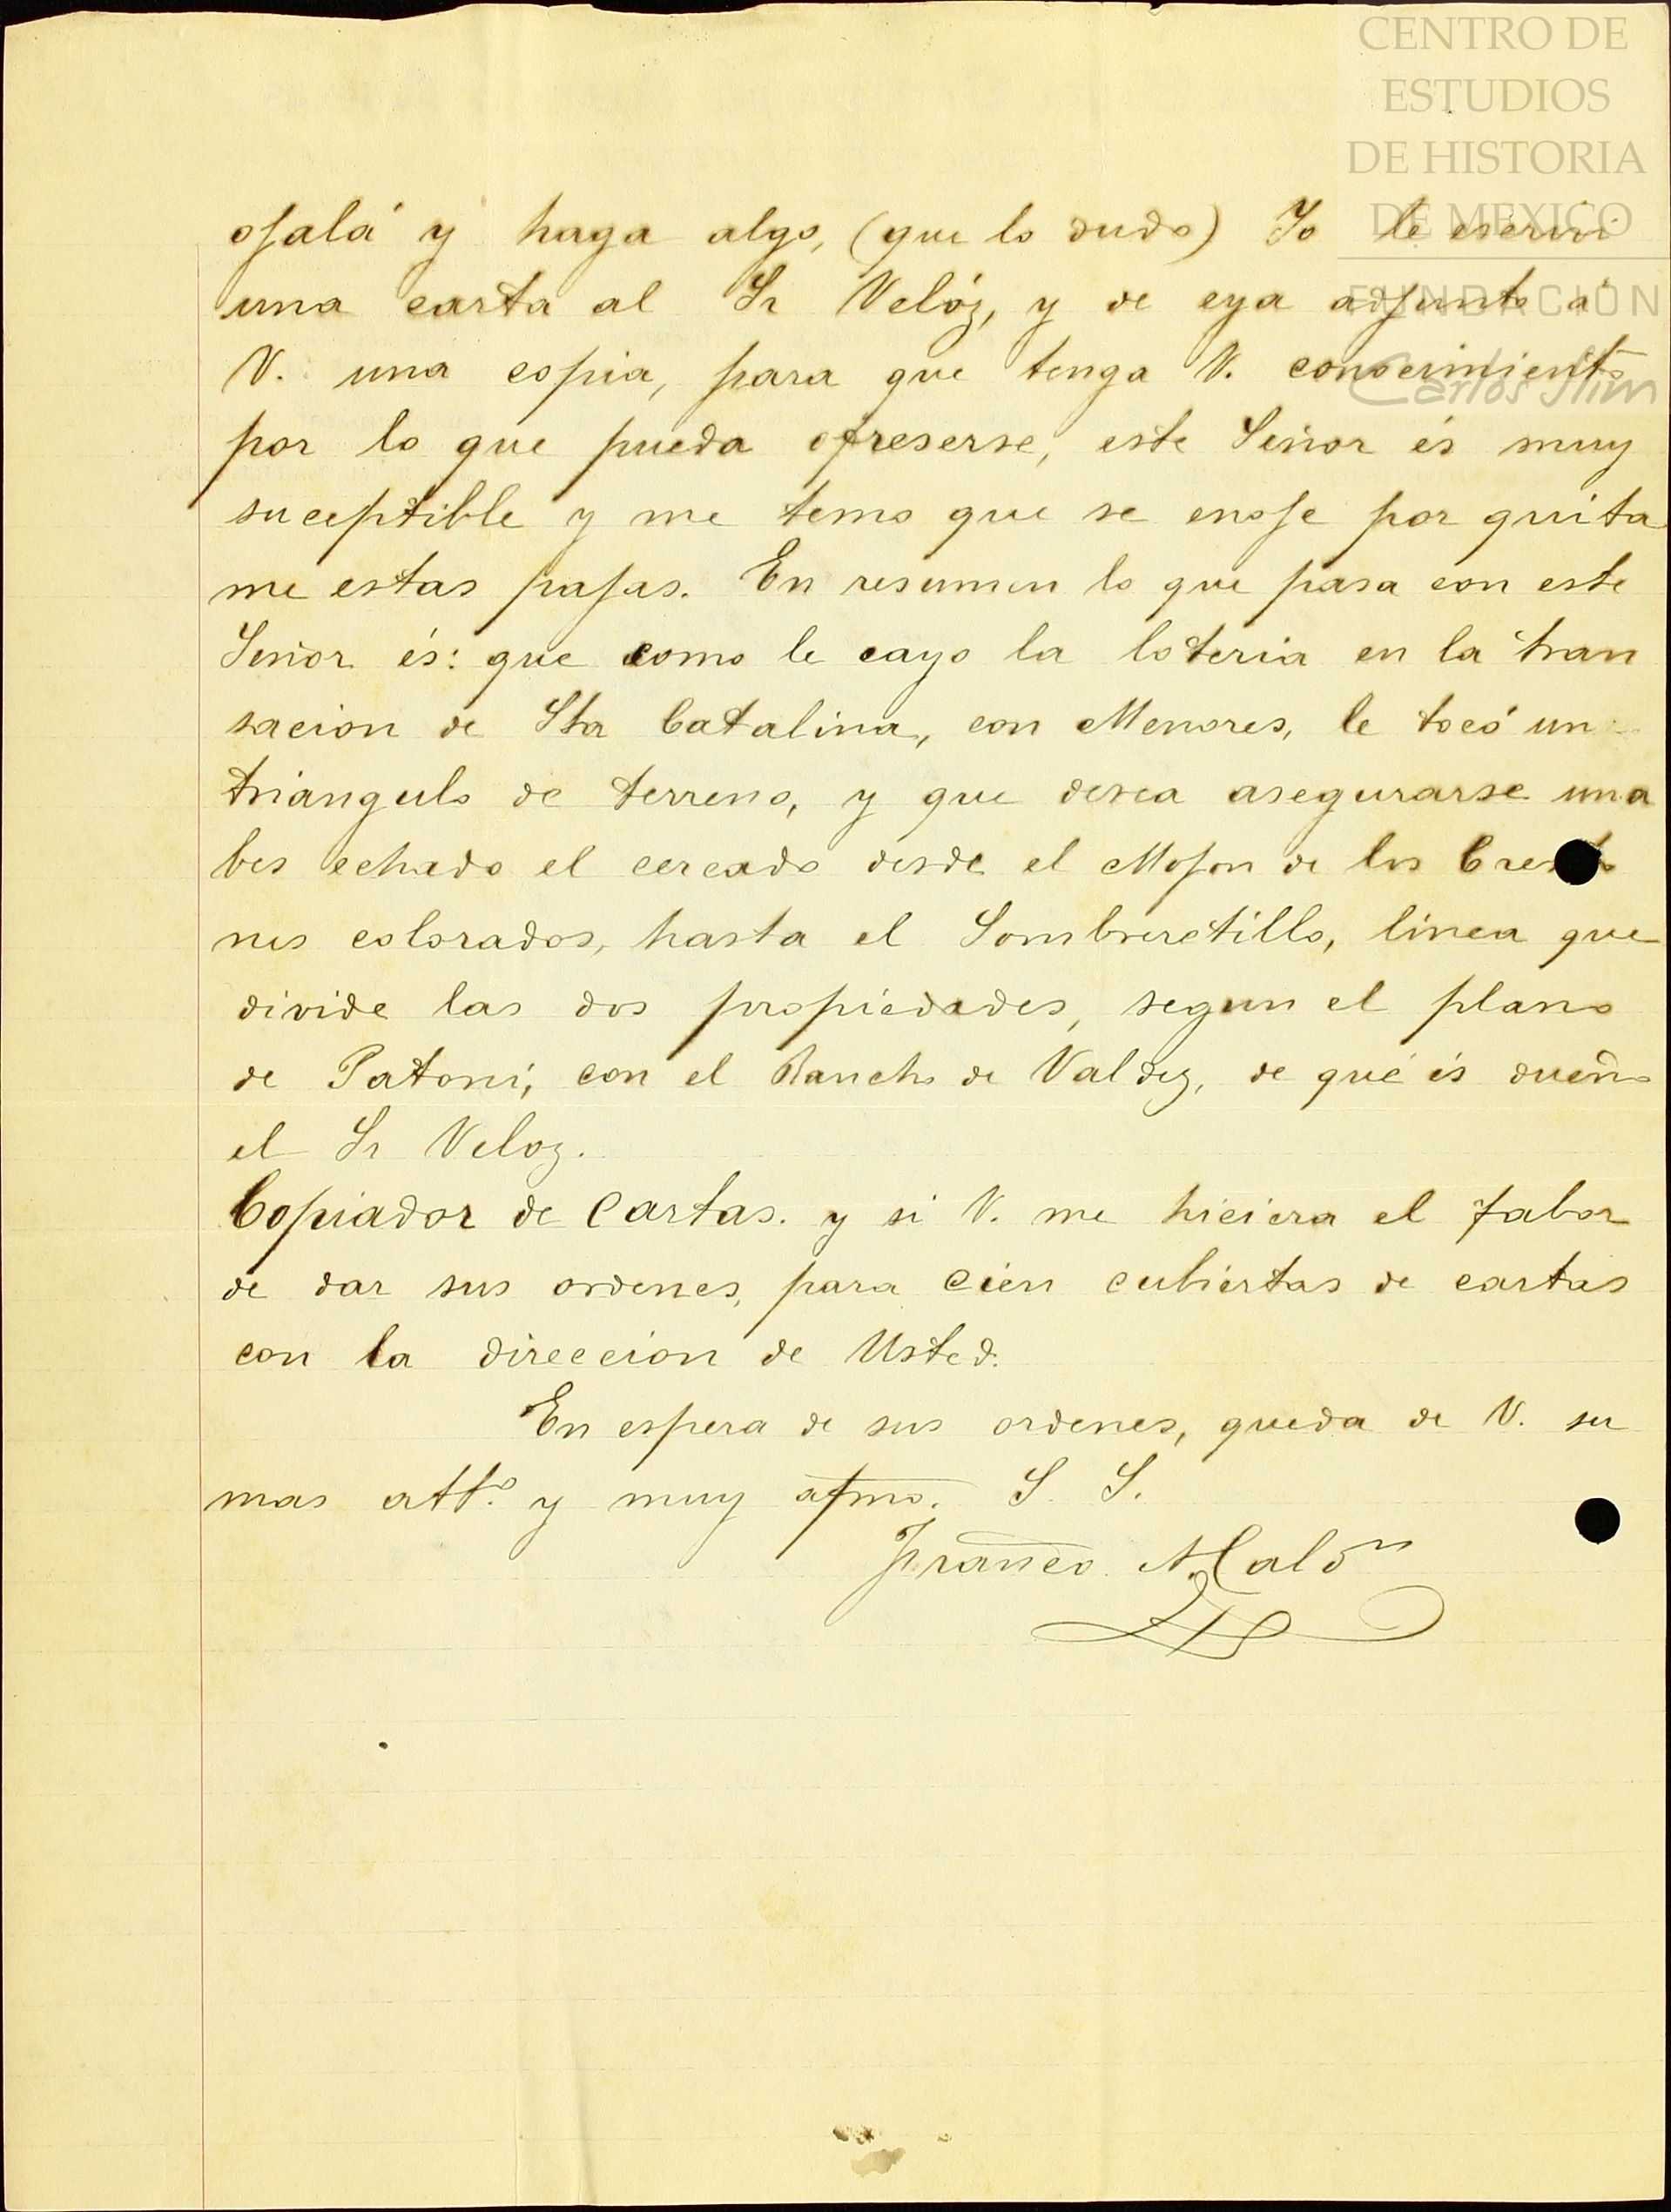 CENTRO DE
ESTUDIOS
DE HISTORIA
DE MEXICO
FUNDACIÓN
Carlos Slim
ojalá y haga algo, (que lo dudo) Yo le escrivi
una carta al Sr Velóz, y de eya adjunto á
V. una copia, para que tenga V. conocimiento
por lo que pueda ofreserse, este Señor és muy
suceptible y me temo que se enoje por quita
me estas pajas. En resumen lo que pasa con este
Señor és: que como le cayo la loteria en la tran
sacion de Sta Catalina, con Menores, le tocó un
triangulo de terreno, y que desea asegurarse una
bes echado el cercado desde el Mojon de los Cresto
nes colorados, hasta el Sombreretillo, linea que
divide las dos propiedades, segun el plano
de Patoni, con el Rancho de Valdez, de qué és dueño
el Sr Veloz.
Copiador de Cartas. y si V. me hiciera el fabor
de dar sus ordenes, para cien cubiertas de cartas
con la direccion de Usted.
En espera de sus ordenes, queda de V. su
mas att.º y muy afmo. S. S.
Franco